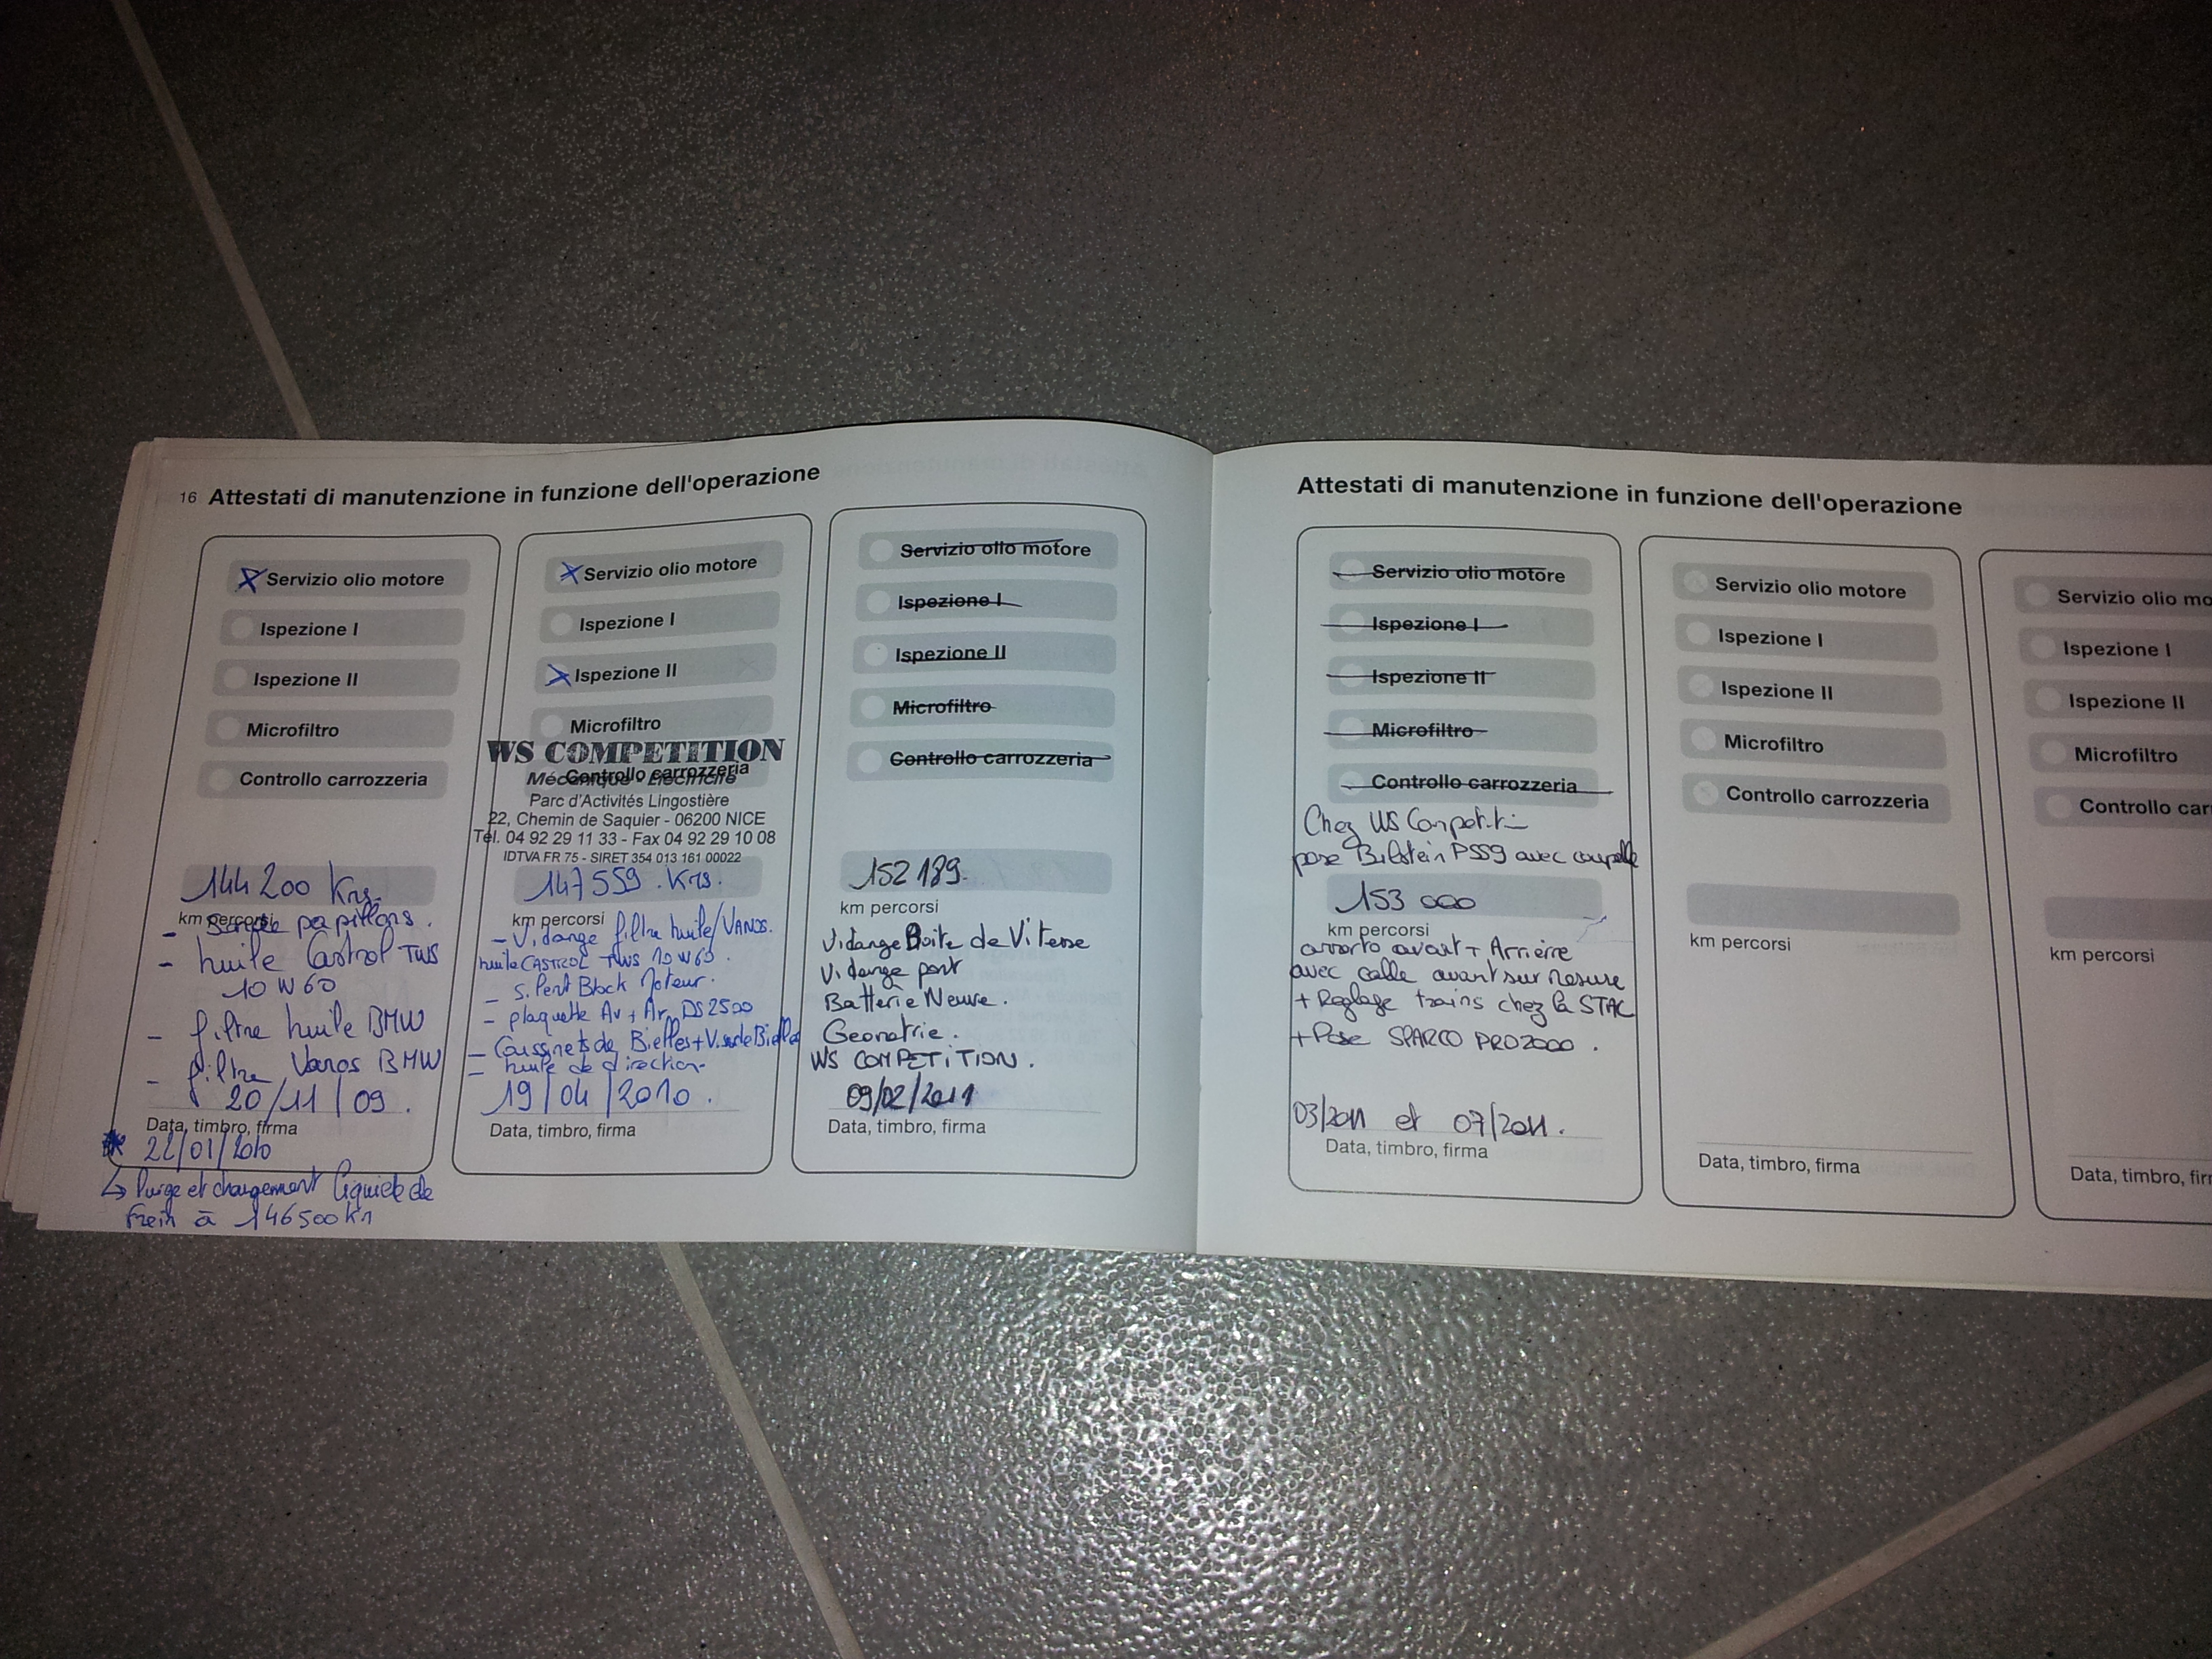 16 Attestati di manutenzione in funzione dell'operazione
Servizio olio motore
Ispezione I
Ispezione II
Microfiltro
Controllo carrozzeria
144 200 Kms
km percorsi
- papillons.
- huile Castrol TWS
10 W 60
- filtre huile BMW
- filtre Vanos BMW
20/11/09.
Data, timbro, firma
22/01/2010
↳ Purge et changement liquide de
frein à 146500 Km
Servizio olio motore
Ispezione I
Ispezione II
Microfiltro
WS COMPETITION
Controllo carrozzeria
Mécanique Electricité
Parc d'Activités Lingostière
22, Chemin de Saquier - 06200 NICE
Tél. 04 92 29 11 33 - Fax 04 92 29 10 08
IDTVA FR 75 - SIRET 354 013 161 00022
147 559. Kms.
km percorsi
- Vidange filtre huile/VANOS.
huile CASTROL TWS 10W60.
- S. Lent Block Moteur.
- plaquette Av + Ar DS2500
- Coussinets de Bielles + Vis de Bielles
- huile de direction
19/04/2010.
Data, timbro, firma
Servizio olio motore
Ispezione I
Ispezione II
Microfiltro
Controllo carrozzeria
152 189.
km percorsi
Vidange Boite de Vitesse
Vidange pont
Batterie Neuve.
Geometrie.
WS COMPETITION.
09/02/2011
Data, timbro, firma
Attestati di manutenzione in funzione dell'operazione
Servizio olio motore
Ispezione I
Ispezione II
Microfiltro
Controllo carrozzeria
Chez WS Competition
pose Bilstein PSS9 avec coupelle
153 000
km percorsi
amorto avant + Arrière
avec calle avant sur mesure
+ Reglage trains chez la STAC
+ Pose SPARCO PRO2000.
03/2011 et 07/2011.
Data, timbro, firma
Servizio olio motore
Ispezione I
Ispezione II
Microfiltro
Controllo carrozzeria
km percorsi
Data, timbro, firma
Servizio olio mo
Ispezione I
Ispezione II
Microfiltro
Controllo car
km percorsi
Data, timbro, fir